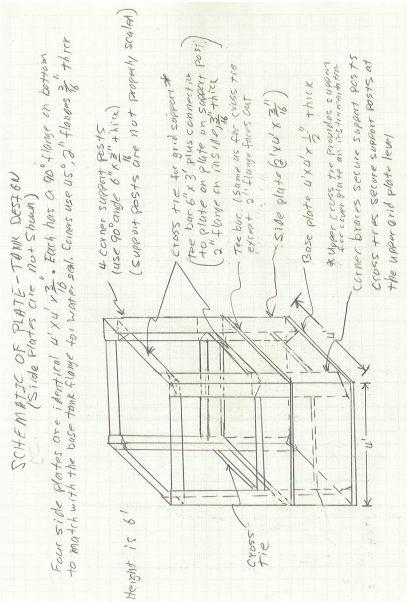 SCHEMATIC OF PLATE-TANK DESIGN
(Side Plates are Not Shown)
Four side plates are identical 4' x 4' x 3/16". Each has a 90° flange on bottom
to match with the base tank flange for water seal. Corners use 45°, 2" flanges 3/16" thick
Height is 6'
4 corner support posts
(use 90° angle 6" x 3/16" thick)
(support posts are not properly scaled)
Cross tie for grid support *
(Tee bar 6" x 3' plus connection
to plate on plate on support post,
2" flange on inside, 3/16" thick)
Tee bar (same as for cross tie
except 2" flange faces out
Side plate (2' x 4' x 3/16")
Base plate 4' x 4' x 1/2" thick
* Upper cross tie provides support
for cover plate on instrumentation
Corner braces secure support posts
Cross ties secure support posts at
the upper grid plate level
Cross
tie
4'
4'